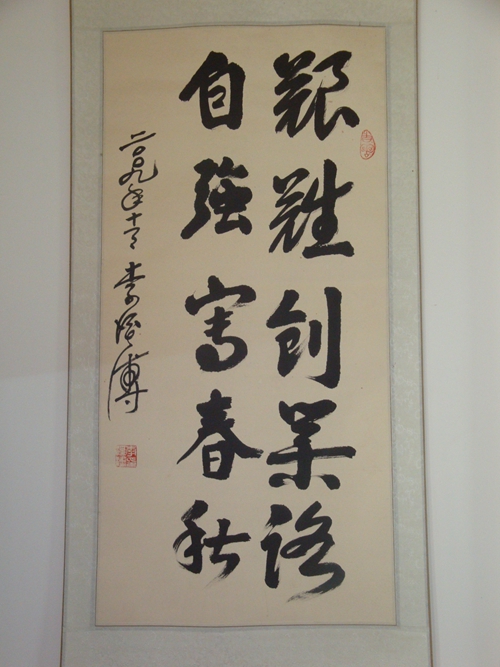 艱難創業路
自強寫春秋
二〇〇九年十 李